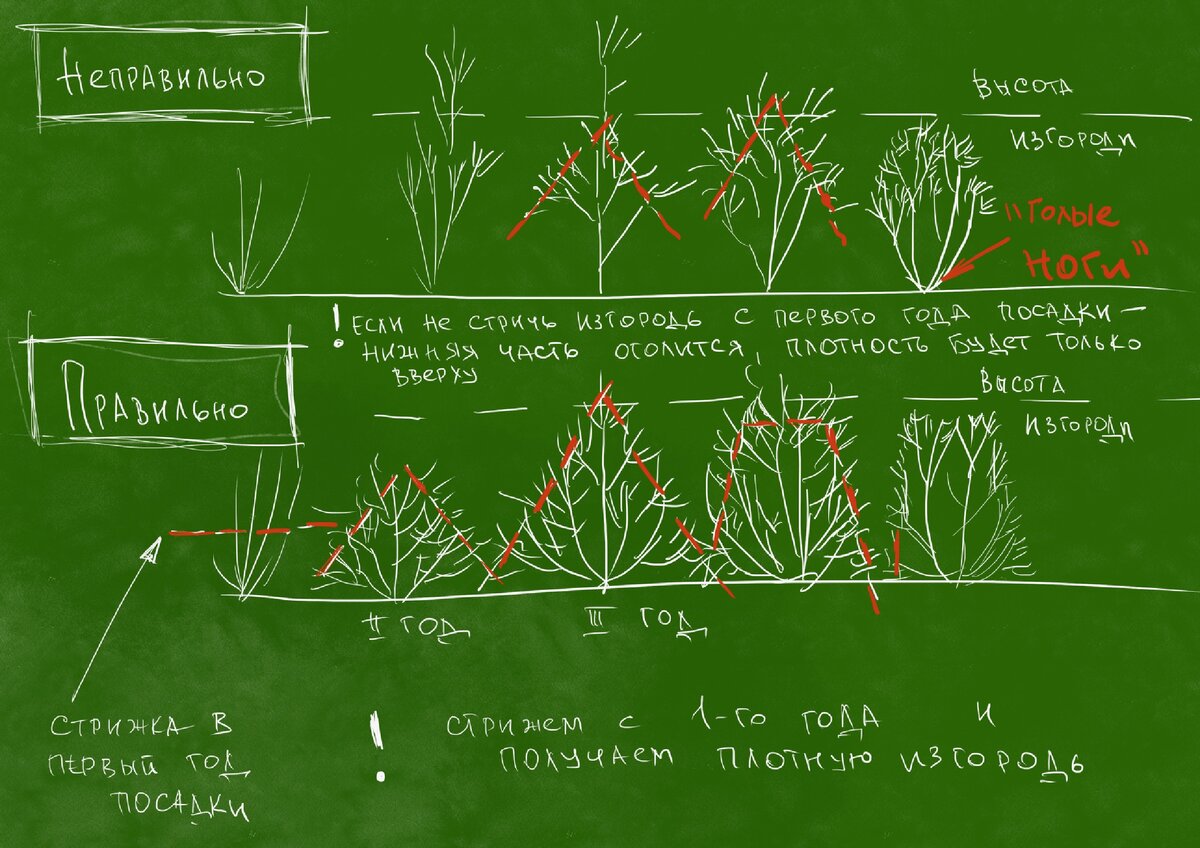 Неправильно
Высота
изгороди
"Голые
ноги"
! Если не стричь изгородь с первого года посадки —
нижняя часть оголится, плотность будет только
вверху
Правильно
Высота
изгороди
II год
III год
Стрижка в
первый год
посадки
! Стрижем с 1-го года и
получаем плотную изгородь